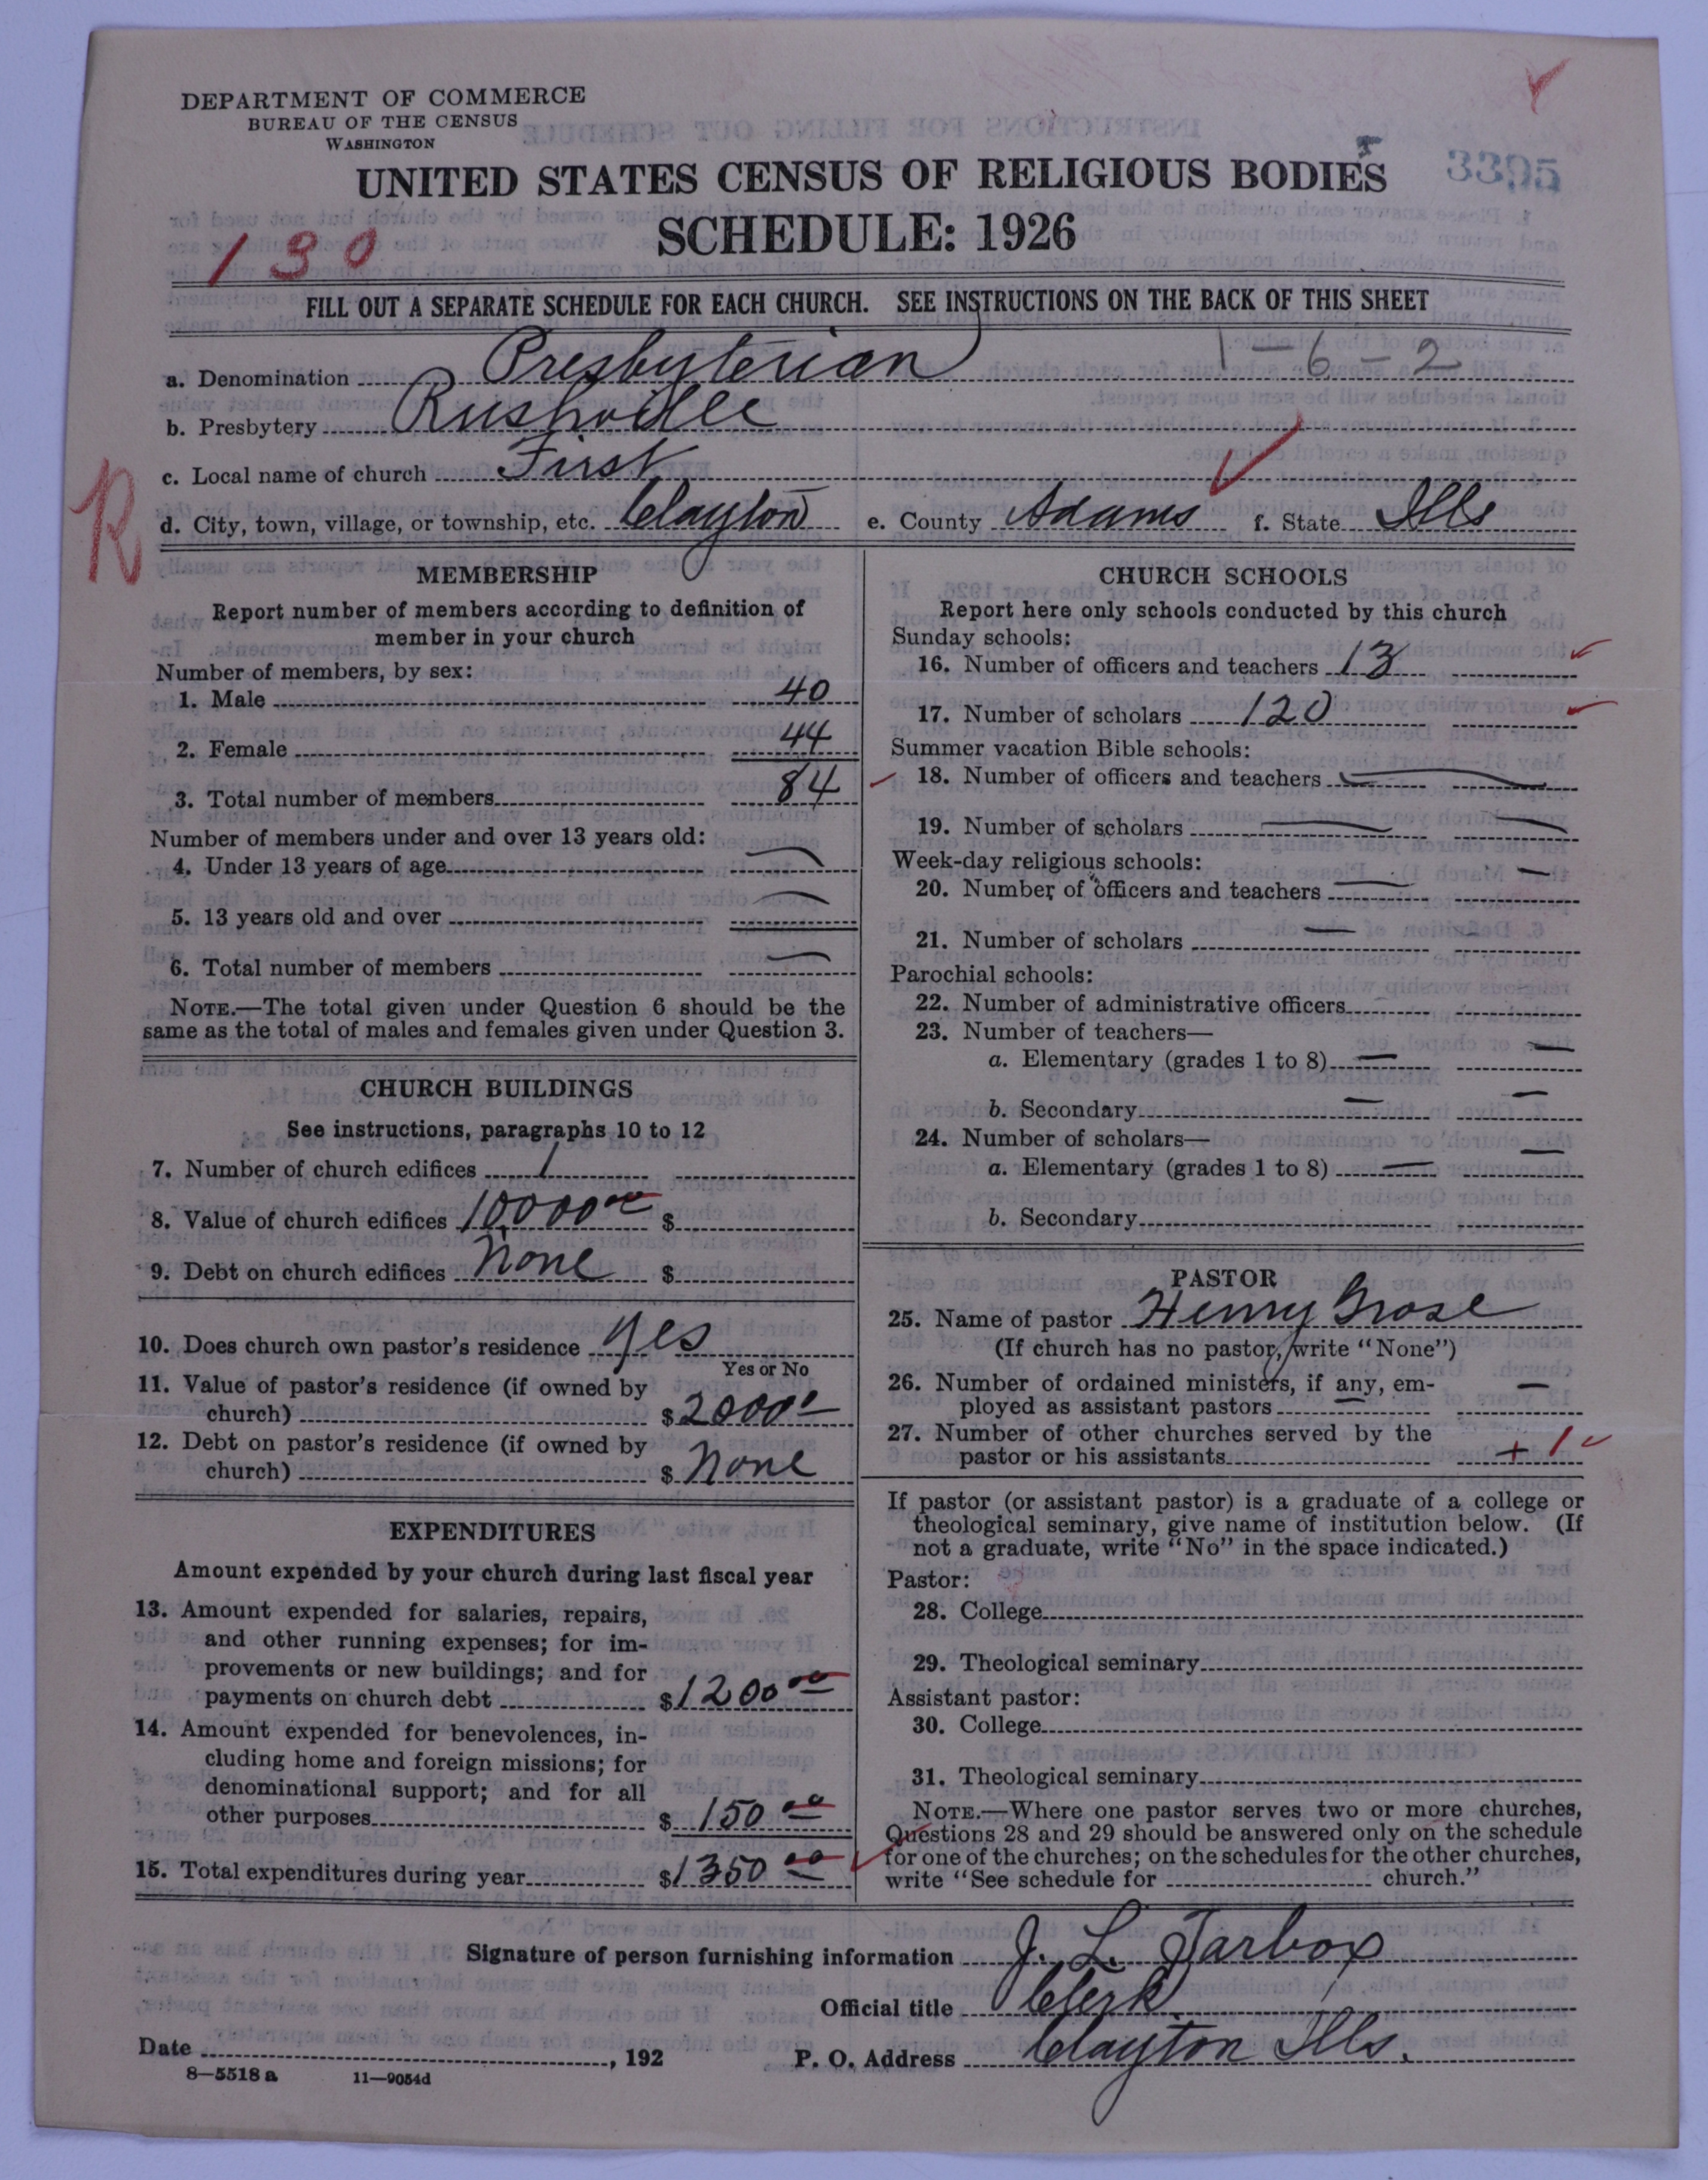 DEPARTMENT OF COMMERCE
BUREAU OF THE CENSUS
WASHINGTON
UNITED STATES CENSUS OF RELIGIOUS BODIES
3395
SCHEDULE: 1926
130
FILL OUT A SEPARATE SCHEDULE FOR EACH CHURCH. SEE INSTRUCTIONS ON THE BACK OF THIS SHEET
a. Denomination Presbyterian 1-6-2
b. Presbytery Rushville
c. Local name of church First
R
d. City, town, village, or township, etc. Clayton e. County Adams f. State Ills
MEMBERSHIP
Report number of members according to definition of
member in your church
Number of members, by sex:
1. Male 40
2. Female 44
3. Total number of members 84
Number of members under and over 13 years old:
4. Under 13 years of age —
5. 13 years old and over —
6. Total number of members —
NOTE.—The total given under Question 6 should be the
same as the total of males and females given under Question 3.
CHURCH BUILDINGS
See instructions, paragraphs 10 to 12
7. Number of church edifices 1
8. Value of church edifices 10000 00 $
9. Debt on church edifices None $
10. Does church own pastor's residence Yes
Yes or No
11. Value of pastor's residence (if owned by
church) $ 2000 00
12. Debt on pastor's residence (if owned by
church) $ None
EXPENDITURES
Amount expended by your church during last fiscal year
13. Amount expended for salaries, repairs,
and other running expenses; for im-
provements or new buildings; and for
payments on church debt $ 1200 00
14. Amount expended for benevolences, in-
cluding home and foreign missions; for
denominational support; and for all
other purposes $ 150 00
15. Total expenditures during year $ 1350 00
CHURCH SCHOOLS
Report here only schools conducted by this church
Sunday schools:
16. Number of officers and teachers 13
17. Number of scholars 120
Summer vacation Bible schools:
18. Number of officers and teachers —
19. Number of scholars — —
Week-day religious schools:
20. Number of officers and teachers — —
21. Number of scholars — —
Parochial schools:
22. Number of administrative officers
23. Number of teachers—
a. Elementary (grades 1 to 8) — —
b. Secondary — —
24. Number of scholars—
a. Elementary (grades 1 to 8) — —
b. Secondary
PASTOR
25. Name of pastor Henry Grose
(If church has no pastor, write "None")
26. Number of ordained ministers, if any, em-
ployed as assistant pastors — —
27. Number of other churches served by the
pastor or his assistants + 1
If pastor (or assistant pastor) is a graduate of a college or
theological seminary, give name of institution below. (If
not a graduate, write "No" in the space indicated.)
Pastor:
28. College
29. Theological seminary
Assistant pastor:
30. College
31. Theological seminary
NOTE.—Where one pastor serves two or more churches,
Questions 28 and 29 should be answered only on the schedule
for one of the churches; on the schedules for the other churches,
write "See schedule for church."
Signature of person furnishing information J. L. Tarbox
Official title Clerk
Date , 192 P. O. Address Clayton Ills.
8—5518a 11—9054d